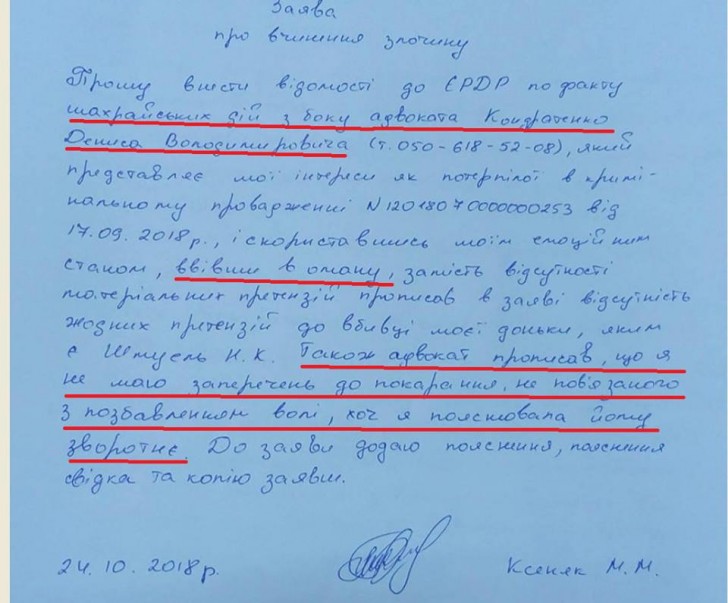 Заява
про вчинення злочину
Прошу внести відомості до ЄРДР по факту
шахрайських дій з боку адвоката Кондратенко
Дениса Володимировича (т. 050-618-52-08), який
представляє мої інтереси як потерпілої в кримі-
нальному провадженні N12018070000000253 від
17.09.2018р., і скориставшись моїм емоційним
станом, ввівши в оману, замість відсутності
матеріальних претензій прописав в заяві відсутність
жодних претензій до вбивці моєї доньки, яким
є Штуель Н.К. Також адвокат прописав, що я
не маю заперечень до покарання, не пов'язаного
з позбавленням волі, хоч я пояснювала йому
зворотнє. До заяви додаю пояснення, пояснення
свідка та копію заяви.
24.10.2018р. Ксеняк М.М.